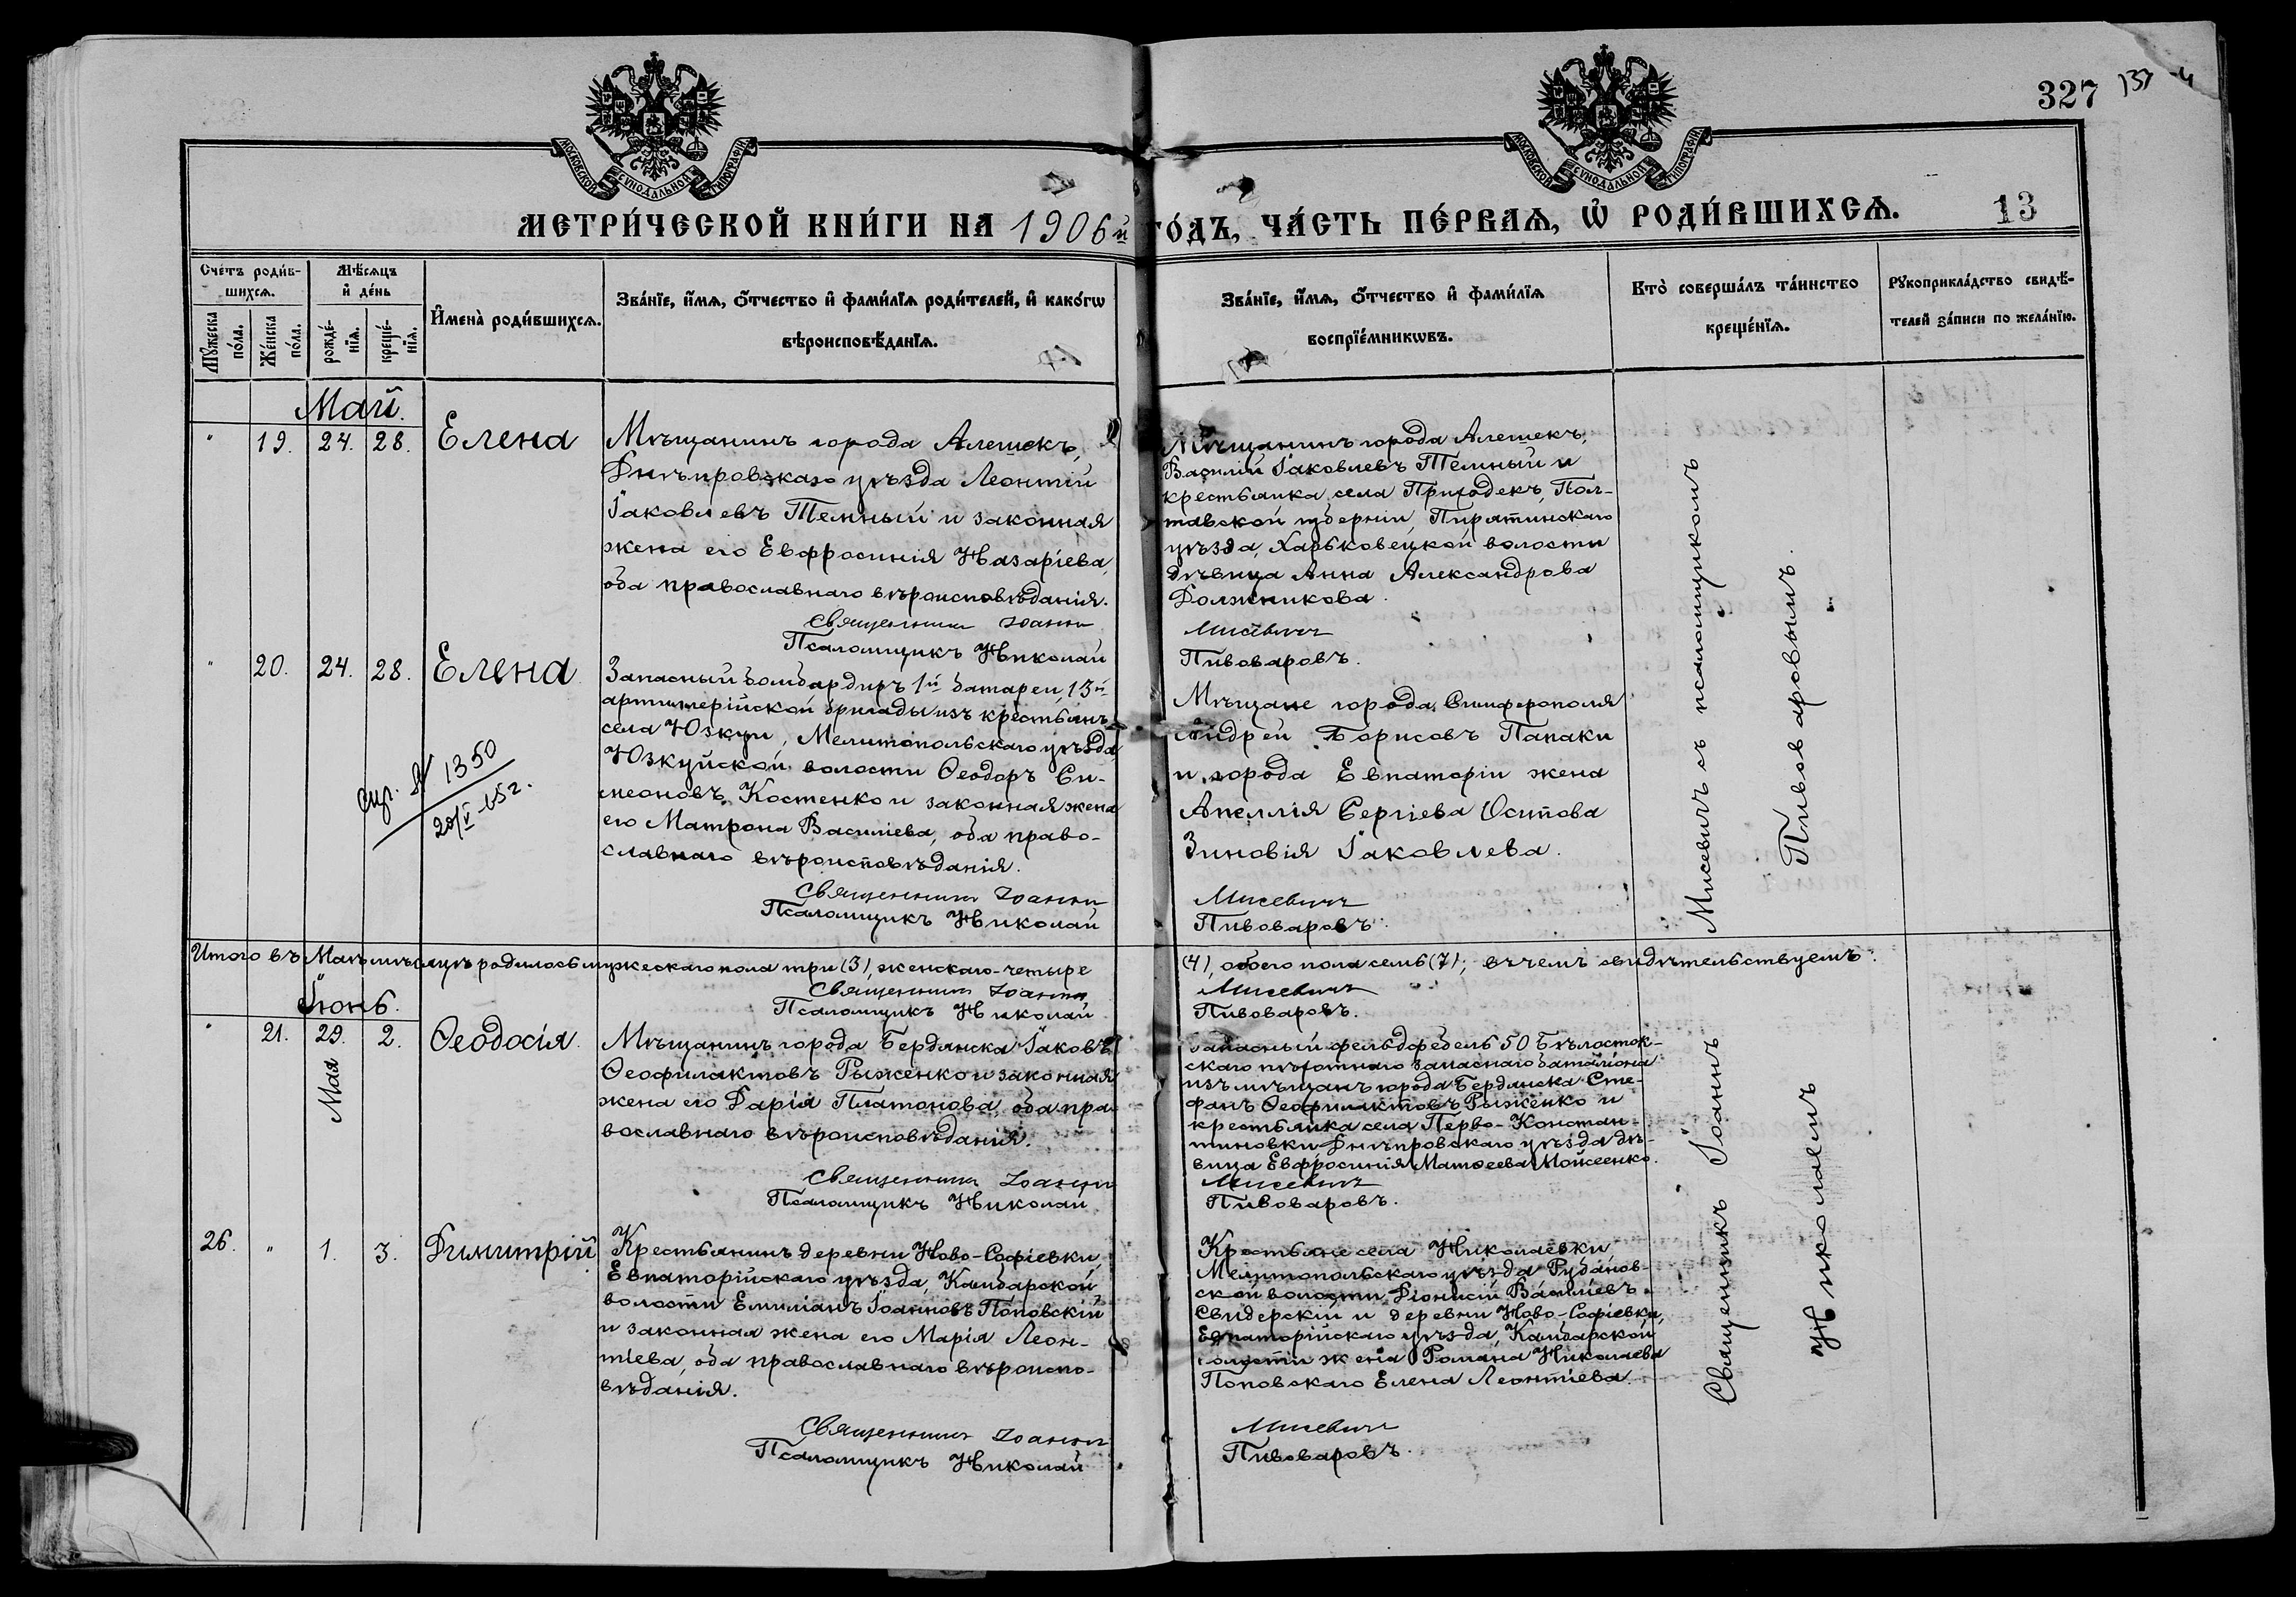 327
МОСКОВСКОЙ СѴНОДАЛЬНОЙ ТИПОГРАФІИ
МОСКОВСКОЙ СѴНОДАЛЬНОЙ ТИПОГРАФІИ
МЕТРИ́ЧЕСКОЙ КНИ́ГИ НА 1906й ГО́ДЪ, ЧА́СТЬ ПЕ́РВАѦ, Ѡ҆ РОДИ́ВШИХСѦ.
13
Сче́тъ роди́в-
шихсѧ.
Мѣ́сѧцъ
и҆ де́нь
Мꙋ́жеска по́ла.
Же́нска по́ла.
рожде́-
нїѧ.
креще́-
нїѧ.
И҆мена̀ роди́вшихсѧ.
Зва́нїе, и҆́мѧ, ѻ҆́тчество и҆ фами́лїѧ роди́телей, и҆ како́гѡ
вѣроисповѣ́данїѧ.
Зва́нїе, и҆́мѧ, ѻ҆́тчество и҆ фами́лїѧ
воспрїе́мникѡвъ.
Кто̀ соверша́лъ та́инство
креще́нїѧ.
Рꙋкоприкла́дство свидѣ́-
телей за́писи по жела́нїю.
Май.
" 19. 24. 28. Елена
Мѣщанинъ города Алешекъ,
Днѣпровскаго уѣзда Леонтій
Іаковлевъ Темный и законная
жена его Евфросинія Назаріева,
оба православнаго вѣроисповѣданія.
Священникъ Іоаннъ
Псаломщикъ Николай
Мѣщанинъ города Алешекъ,
Василій Іаковлевъ Темный и
крестьянка села Приходекъ, Пол-
тавской губерніи, Пирятинскаго
уѣзда, Харьковецкой волости
дѣвица Анна Александрова
Должникова.
Мисевичъ
Пивоваровъ.
" 20. 24. 28. Елена
Запасный бомбардиръ 1й батареи, 13й
артиллерійской бригады изъ крестьянъ
села Юзкуи, Мелитопольскаго уѣзда
Юзкуйской волости Ѳеодоръ Си-
меоновъ Костенко и законная жена
его Матрона Василіева, оба право-
славнаго вѣроисповѣданія.
Священникъ Іоаннъ
Псаломщикъ Николай
1350
20/V-65г.
Мѣщане города Симферополя
Андрей Борисовъ Папаки
и города Евпаторіи жена
Апеллія Сергіева Осипова
Зиновія Іаковлева.
Мисевичъ
Пивоваровъ.
Итого въ Маѣ мѣсяцѣ родилось мужескаго пола три (3), женскаго-четыре
(4), обоего пола семь (7); въ чемъ свидѣтельствуемъ.
Священникъ Іоаннъ
Псаломщикъ Николай
Мисевичъ
Пивоваровъ.
Іюнь.
" 21. 29. 2. Ѳеодосія.
Мая
Мѣщанинъ города Бердянска Іаковъ
Ѳеофилактовъ Рыженко и законная
жена его Дарія Платонова, оба пра-
вославнаго вѣроисповѣданія.
Священникъ Іоаннъ
Псаломщикъ Николай
Запасный фельдфебель 50 Бѣлосток-
скаго пѣхотнаго запаснаго баталіона
изъ мѣщанъ города Бердянска Сте-
фанъ Ѳеофилактовъ Рыженко и
крестьянка села Перво-Констан-
тиновки Днѣпровскаго уѣзда дѣ-
вица Евфросинія Матѳеева Мойсеенко.
Мисевичъ
Пивоваровъ.
26. " 1. 3. Димитрій
Крестьянинъ деревни Ново-Софіевки,
Евпаторійскаго уѣзда, Камбарской
волости Емиліанъ Іоанновъ Поповскій
и законная жена его Марія Леон-
тіева, оба православнаго вѣроиспо-
вѣданія.
Священникъ Іоаннъ
Псаломщикъ Николай
Крестьяне села Николаевки,
Мелитопольскаго уѣзда Рубанов-
ской волости Діонисій Василіевъ
Свидерскій и деревни Ново-Софіевки,
Евпаторійскаго уѣзда, Камбарской
волости жена Романа Николаева
Поповскаго Елена Леонтіева.
Мисевичъ
Пивоваровъ.
Священникъ Іоаннъ Мисевичъ съ псаломщикомъ
Николаемъ Пивоваровымъ.